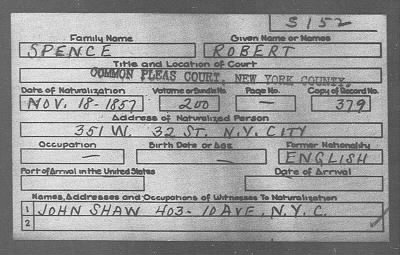 S 152
Family Name Given Name or Names
SPENCE ROBERT
Title and Location of Court
COMMON PLEAS COURT, NEW YORK COUNTY.
Date of Naturalization Volume or Bundle No. Page No. Copy of Record No.
NOV. 18-1857 200 — 379
Address of Naturalized Person
351 W. 32 ST. N.Y. CITY
Occupation Birth Date or Age Former Nationality
— — ENGLISH
Port of Arrival in the United States Date of Arrival
Names, Addresses and Occupations of Witnesses To Naturalization
1 JOHN SHAW 403- 10 AVE, N.Y.C.
2